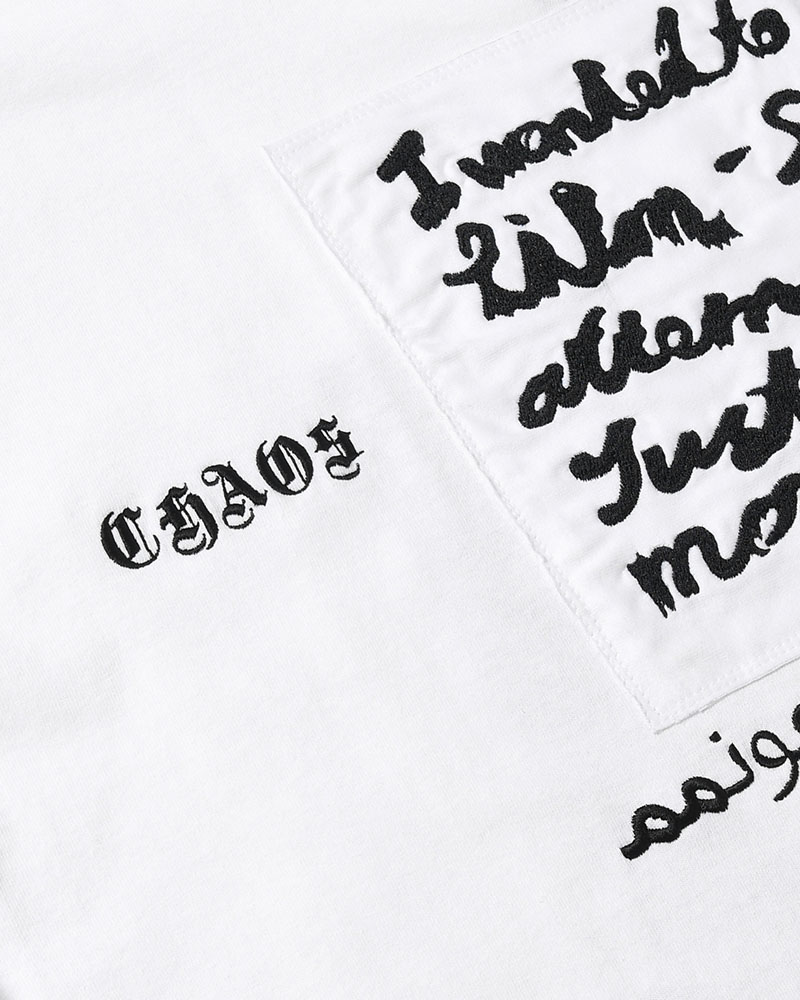 I wanted to
film - S
attem
Just
mo
CHAOS